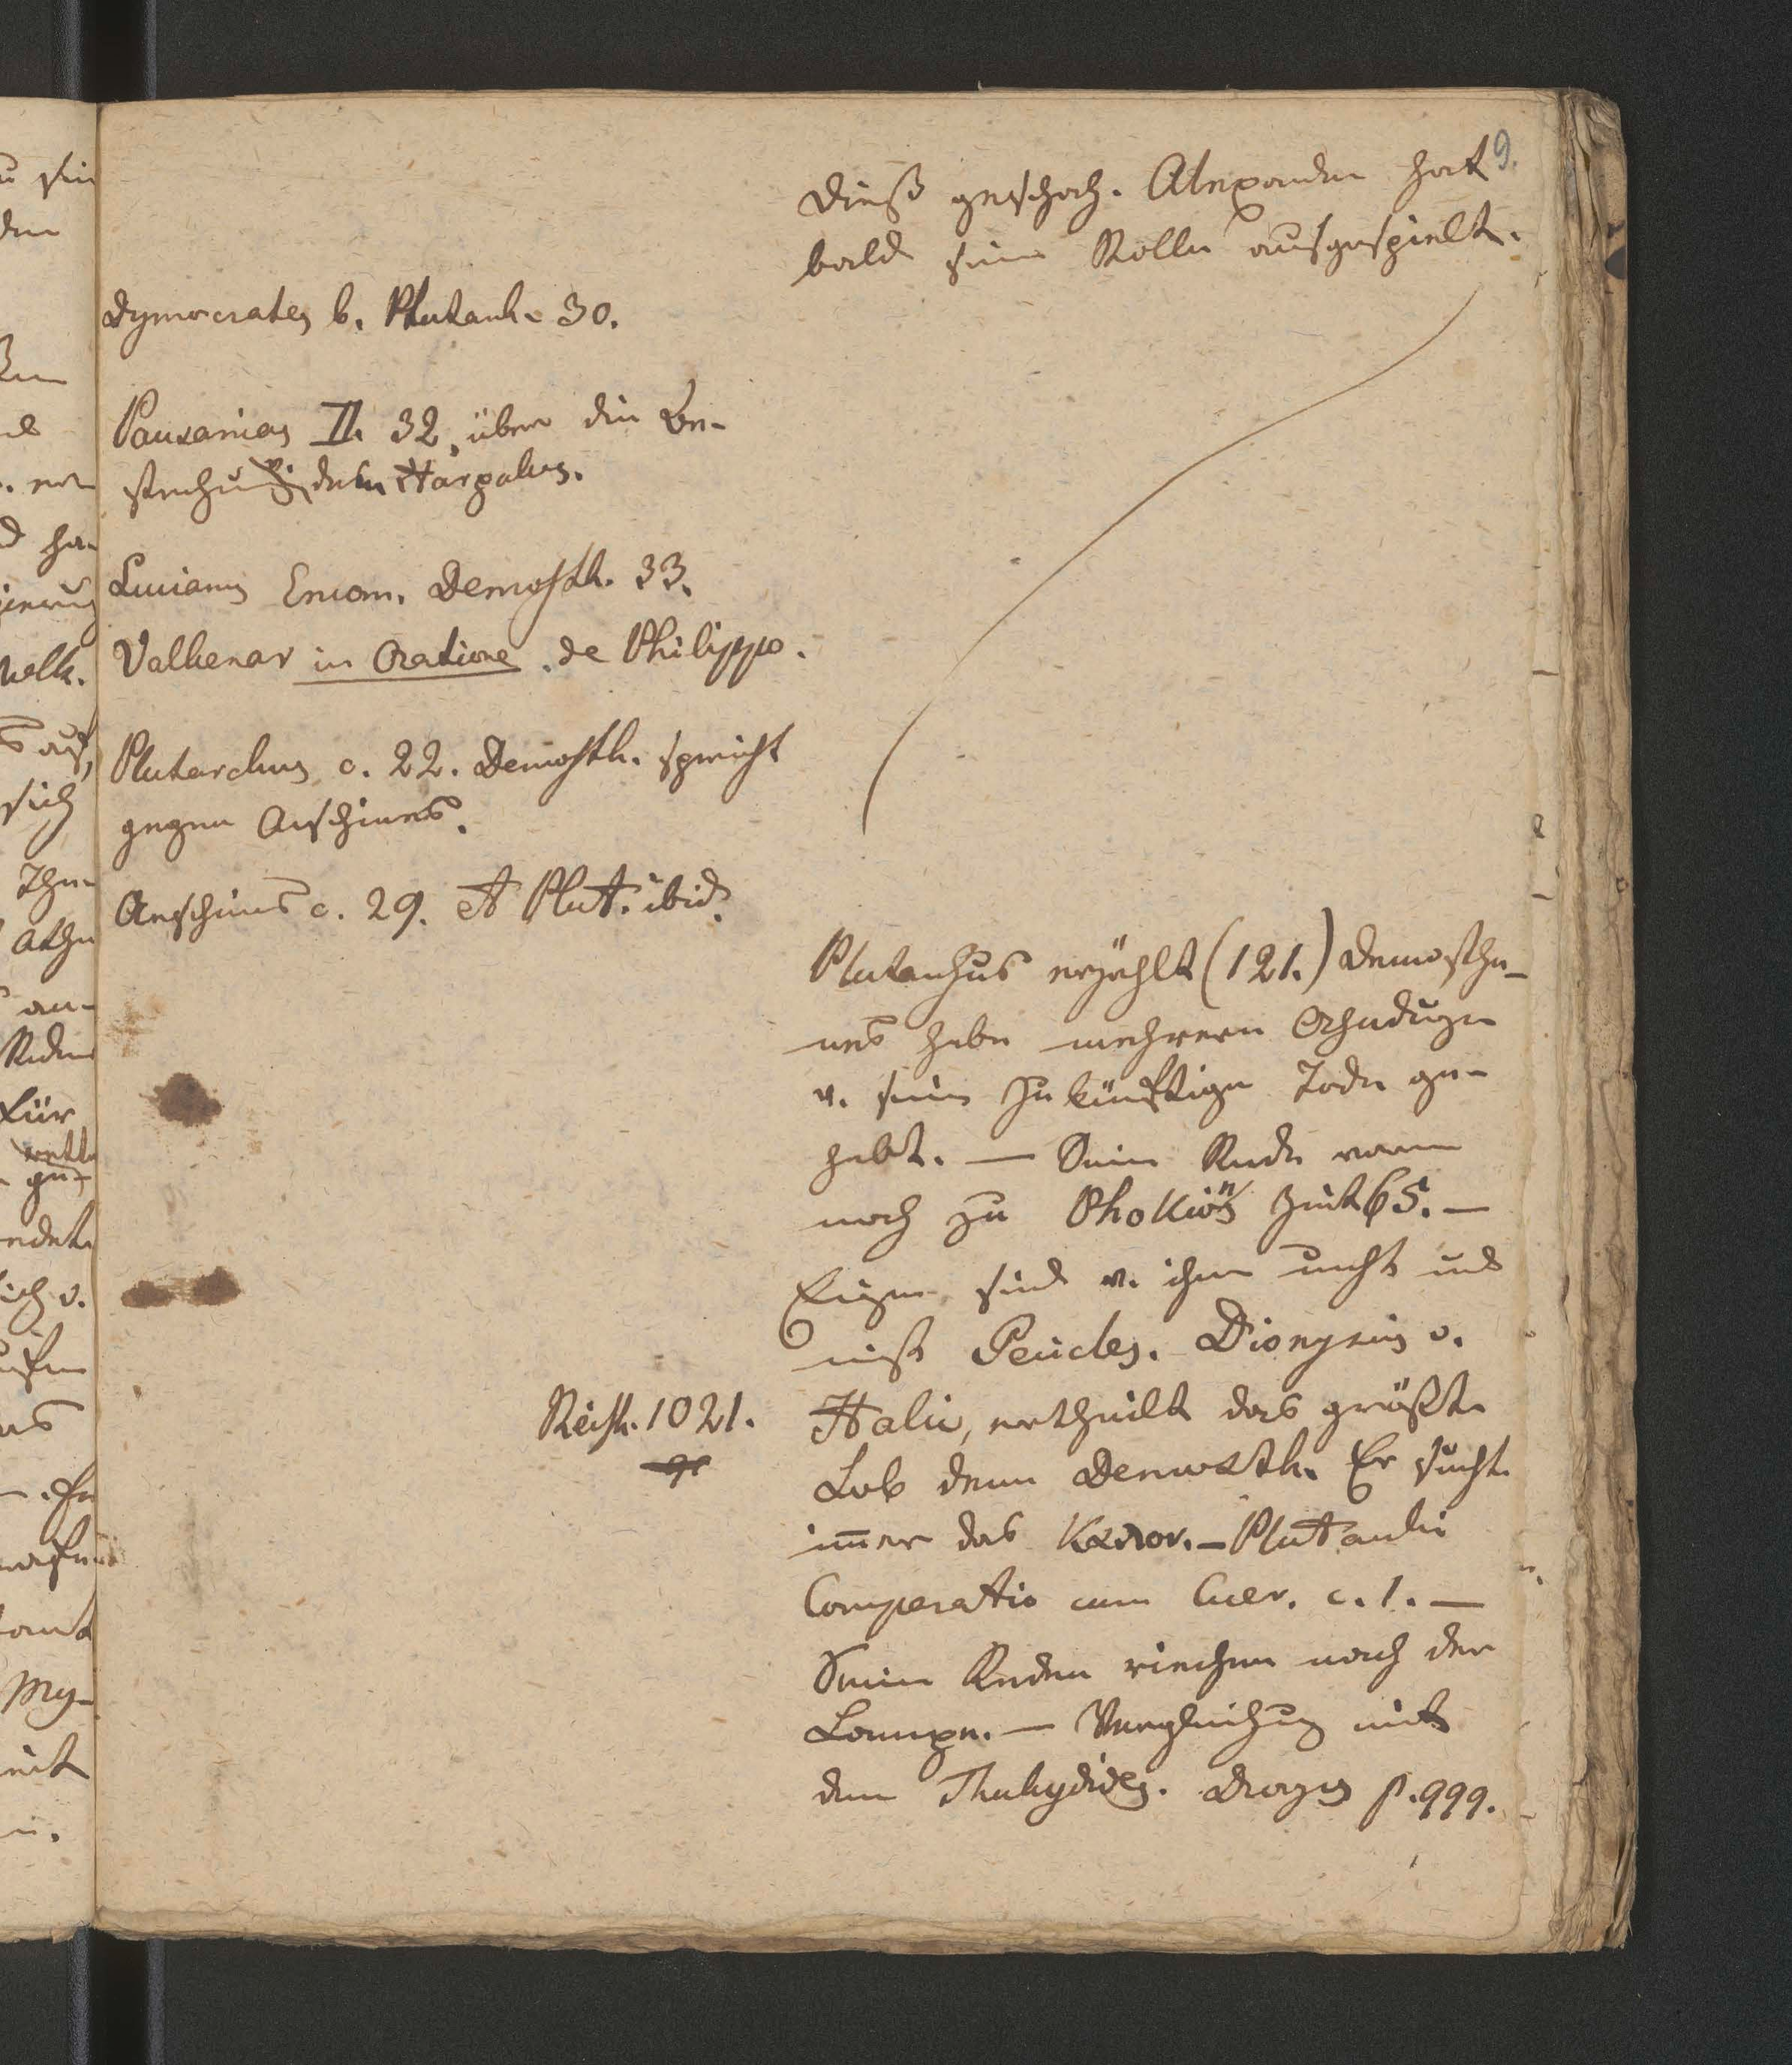 9.
dieß geschah. Alexander hat
bald seine Rolle ausgespielt.
Dymocrates b. Plutarch. 30.
Pausanias II. 32, über die Be-
stechung v. dem Harpalus.
Lucianus Encom. Demosth. 33.
Valkenar in Oratione de Philippo.
Plutarchus c. 22. Demosth. spricht
gegen Aeschines.
Aeschines c. 29. et Plut. ibid.
Plutarchus erzählt (121.) Demosthe-
nes habe mehrere Ahndugen
v. seim zukünftigen Tode ge-
habt. — Seine Rede waren
noch zu Phokions Zeit 65. —
Zeugen sind v. ihm nicht und
nicht Pericles. Dionysius v.
Reisk. 1021.
Halic, ertheilt das größte
Lob dem Demosth. Er sucht
im̄er das Καλον. — Plutarchi
Comperatio cum Cicer. c. 1. —
Seine Reden riechen nach der
Lampe. — Vergleichung mit
dem Thukydides. p. 999.